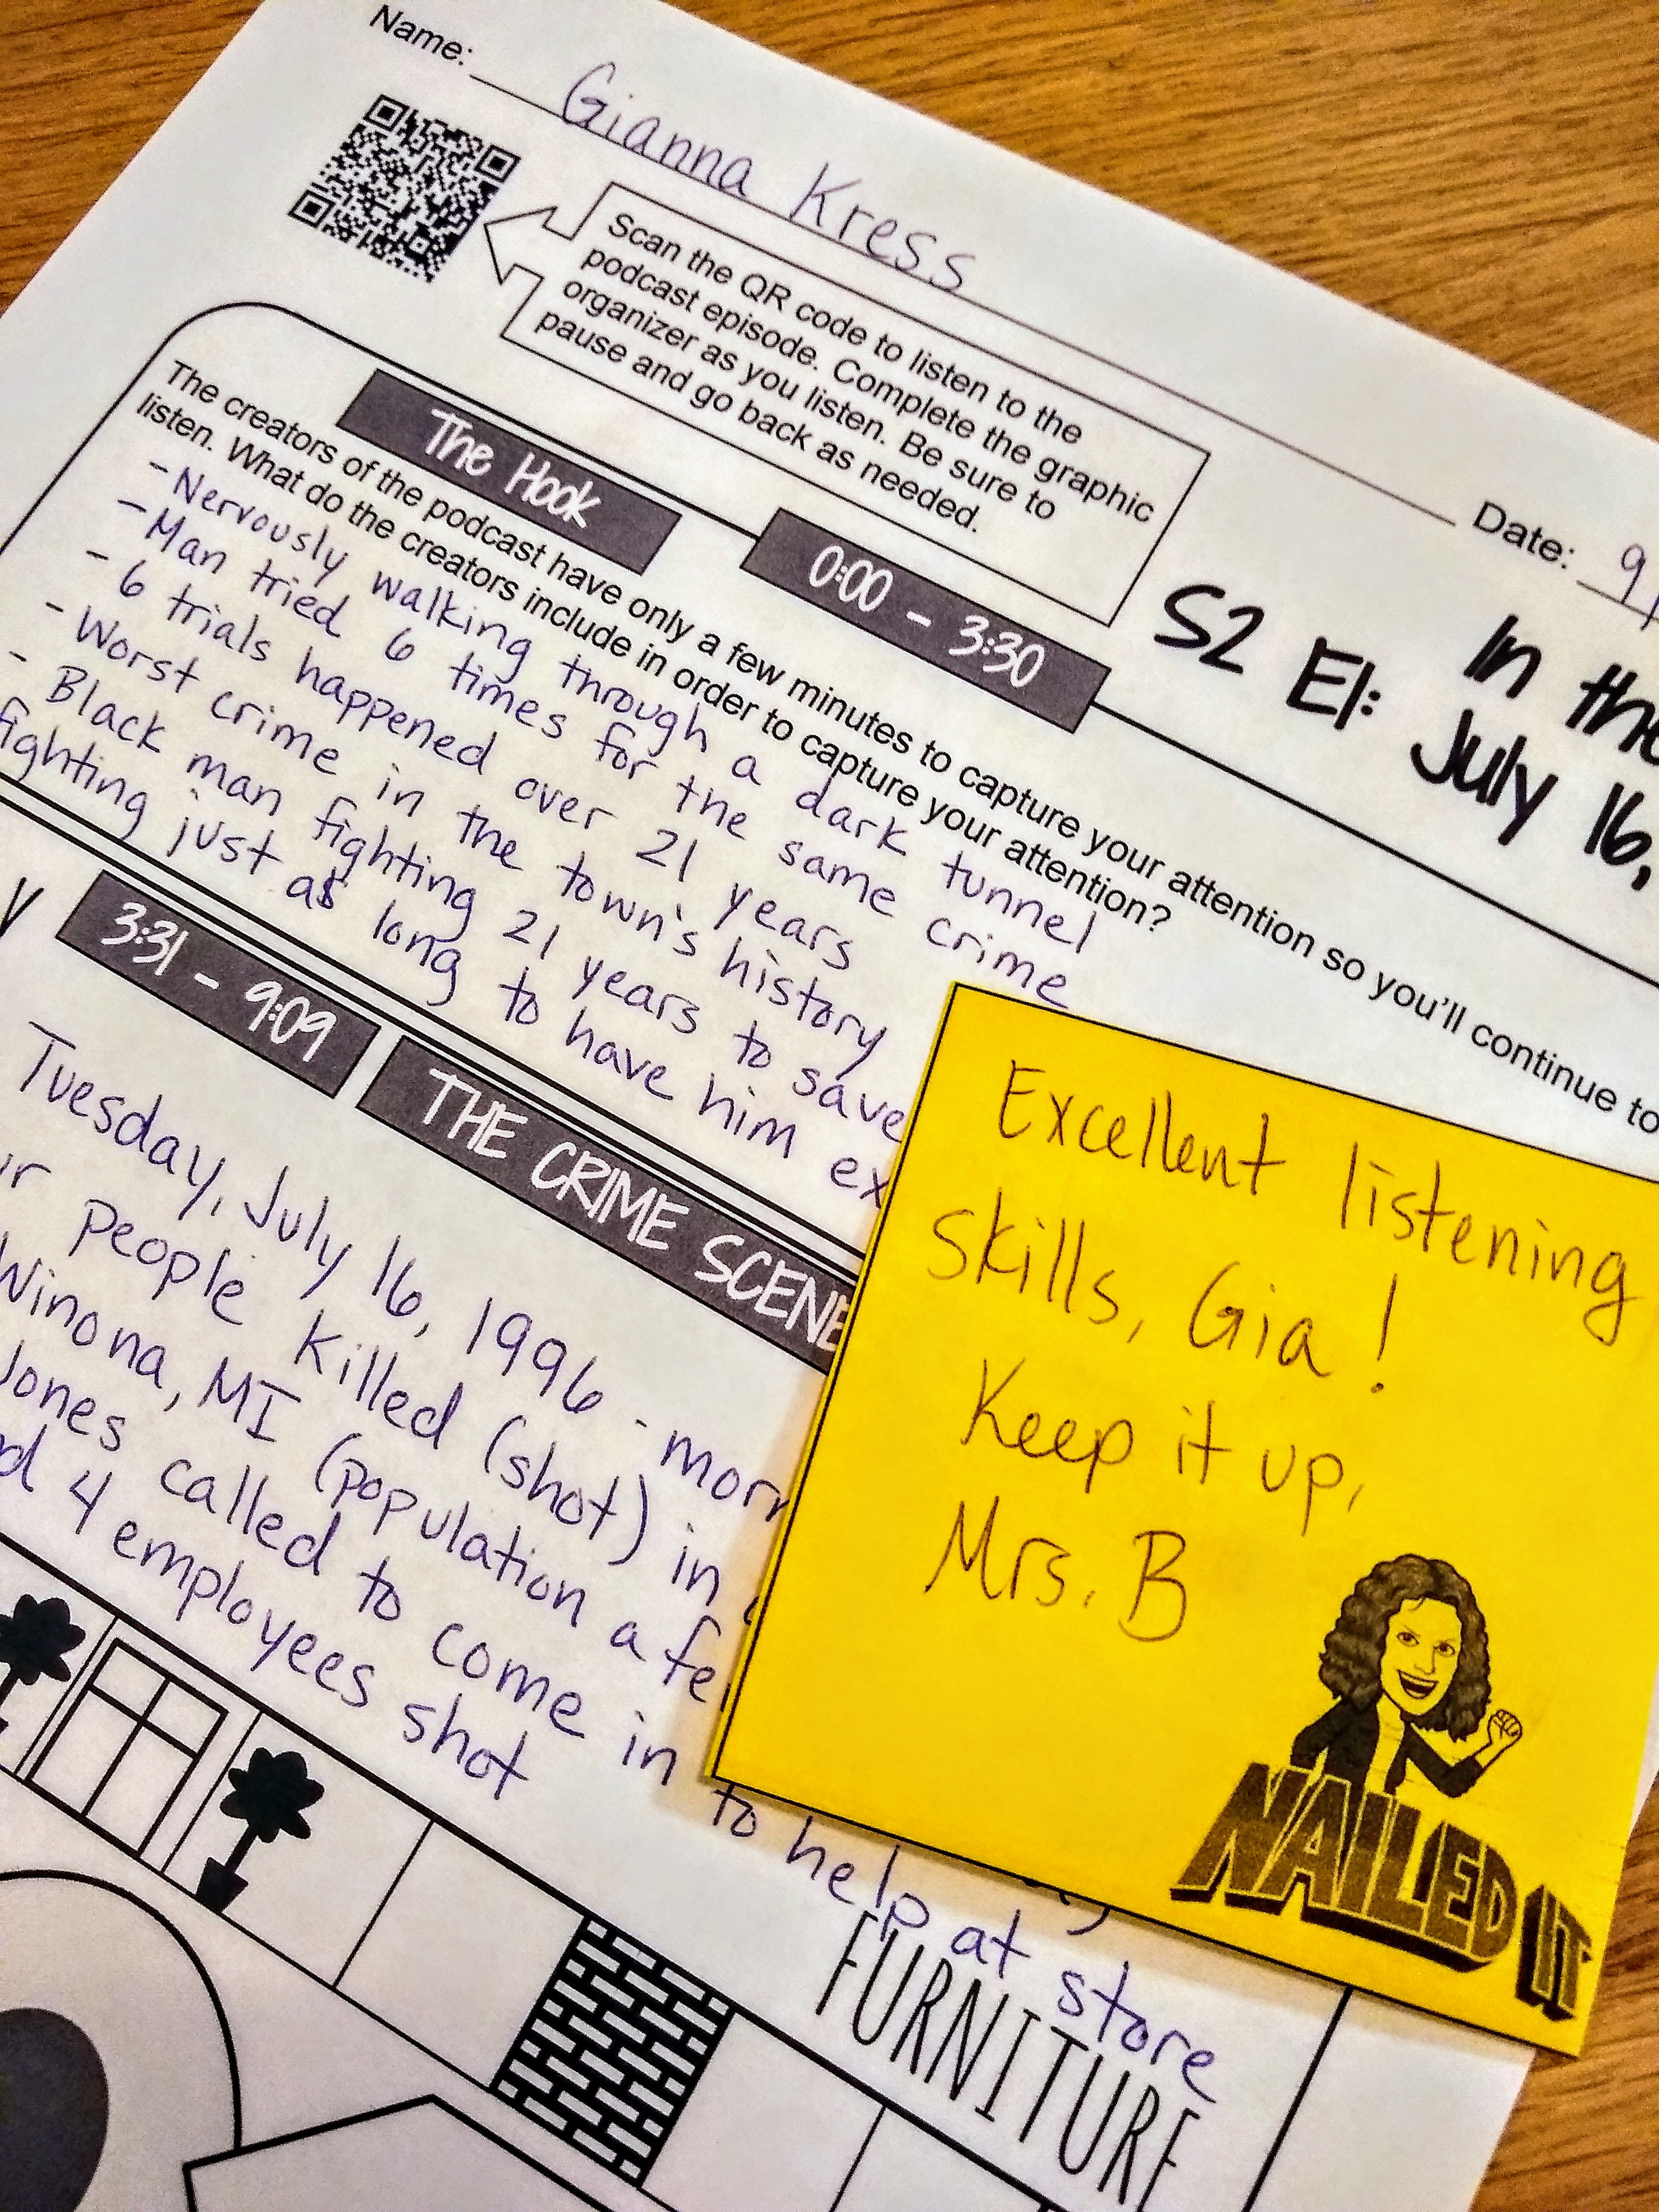 Name: Gianna Kress
Date: 9/
Scan the QR code to listen to the
podcast episode. Complete the graphic
organizer as you listen. Be sure to
pause and go back as needed.
In the
S2 E1: July 16,
The Hook
0:00 - 3:30
The creators of the podcast have only a few minutes to capture your attention so you'll continue to
listen. What do the creators include in order to capture your attention?
- Nervously walking through a dark tunnel
- Man tried 6 times for the same crime
- 6 trials happened over 21 years
- Worst crime in the town's history
- Black man fighting 21 years to save
fighting just as long to have him ex
3:31 - 9:09
THE CRIME SCENE
Tuesday, July 16, 1996 - morn
people killed (shot) in
Winona, MI (population a fe
Jones called to come in to help at store
4 employees shot
FURNITURE
Excellent listening
skills, Gia!
Keep it up,
Mrs. B
NAILED IT